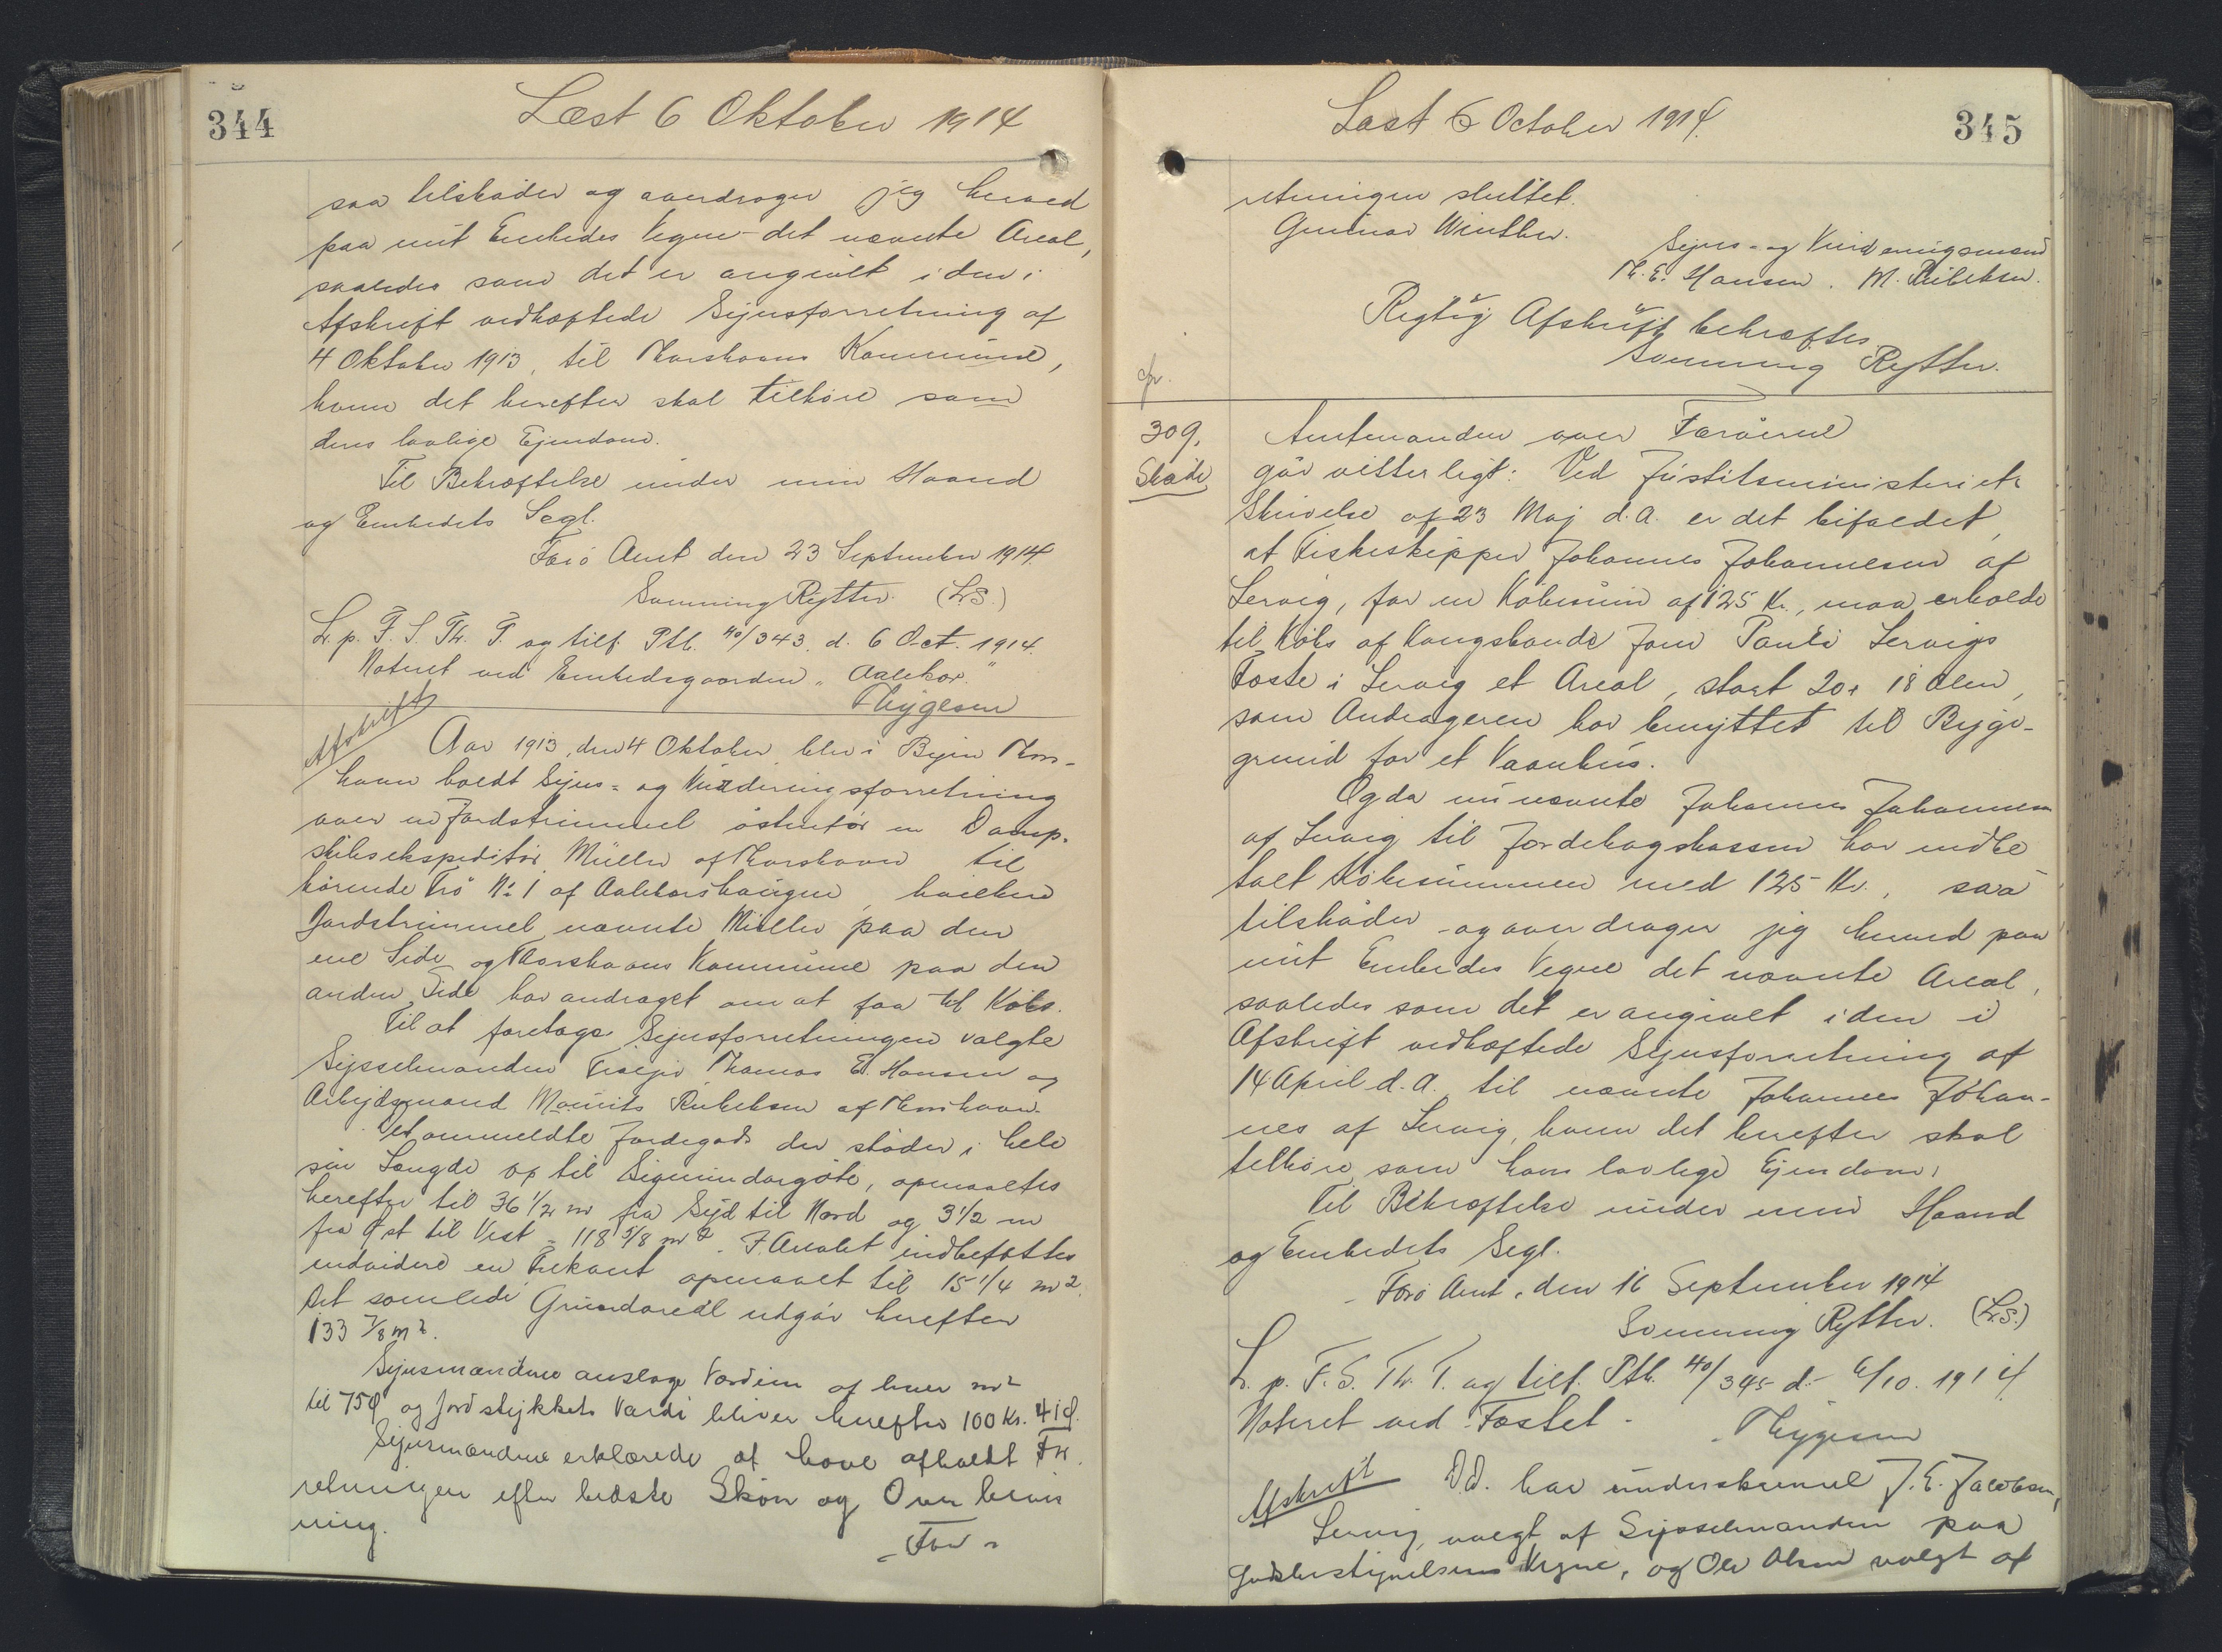 344
Læst 6 Oktober 1914
saa tilskøder og overdrager jeg herved
paa mit Embedes Vegne det nævnte Areal,
saaledes som det er angivet i den i
Afskrift vedhæftede Synsforretning af
4 Oktober 1913, til Thorshavns Kommune,
hvem det herefter skal tilhøre som
dens lovlige Ejendom.
Til Bekræftelse under min Haand
og Embedets Segl.
Færø Amt den 23 September 1914.
Svenning Rytter. (L.S.)
L. p. F. S. Th. T. og tilf. Ptb. 40/343. d. 6 Oct. 1914.
Noteret ved Embedsgaarden "Aalekær."
Thygesen
Afskrift
Aar 1913, den 4 Oktober blev i Byen Thors-
havn holdt Syns- og Vurderingsforretning
over en Jordstrimmel østenfor en Damp-
skibsekspeditør Müller af Thorshavn til
hørende Trø No 1 af Aalekærshaugen, hvilken
Jordstrimmel nævnte Müller paa den
ene Side og Thorshavns Kommune paa den
anden Side har andraget om at faa til Købs.
Til at foretage Synsforretningen valgte
Sysselmanden Tømrer Thomas E. Hansen og
Arbejdsmand Mourits Rubeksen af Thorshavn.
Det ommeldte Jordegods der støder i hele
sin Længde op til Sigmundargøte, opmaaltes
herefter til 36 1/2 m fra Syd til Nord og 3 1/2 m
fra Øst til Vest = 118 5/8 m2. I Arealet indbefattes
endvidere en Trekant opmaalt til 15 1/4 m2.
Det samlede Grundareal udgør herefter
133 7/8 m2.
Synsmændene anslog Værdien af hver m2
til 75 Ø og Jordstykkets Værdi bliver herefter 100 Kr. 41 Ø.
Synsmændene erklærede at have afholdt For
retningen efter bedste Skøn og Overbevis
ning.
- For -
Læst 6 October 1914.
345
retningen sluttet.
Gunnar Winther.
Syns- og Vurderingsmænd
Th. E. Hansen. M. Rubeksen.
Rigtig Afskrift bekræftes
Svenning Rytter.
309.
Skøde
Amtmanden over Færøerne
gør vitterligt: Ved Justitsministeriets
Skrivelse af 23 Maj d.A. er det bifaldet,
at Fiskeskipper Johannes Johannesen af
Lervig, for en Købesum af 125 Kr., maa erholde
til Købs af Kongsbonde Joen Pauli Lervigs
Fæste i Lervig et Areal, stort 20 x 18 Alen,
som Andrageren har benyttet til Bygge-
grund for et Vaanhus.
Og da nu nævnte Johannes Johannesen
af Lervig til Jordebogskassen har indbe
talt Købesummen med 125 Kr., saa
tilskøder og overdrager jeg herved paa
mit Embedes Vegne det nævnte Areal,
saaledes som det er angivet i den i
Afskrift vedhæftede Synsforretning af
14 April d.A. til nævnte Johannes Johan-
nes af Lervig, hvem det herefter skal
tilhøre som hans lovlige Ejendom.
Til Bekræftelse under min Haand
og Embedets Segl.
Færø Amt, den 16 September 1914
Svenning Rytter. (L.S.)
L. p. F. S. Th. T. og tilf. Ptb. 40/345 d. 6/10. 1914
Noteret ved Fæstet. Thygesen
Afskrift
D.D. har underskrevne J. E. Jacobsen,
Lervig, valgt af Sysselmanden paa
Godsbestyrelsens Vegne, og Ole Olsen valgt af